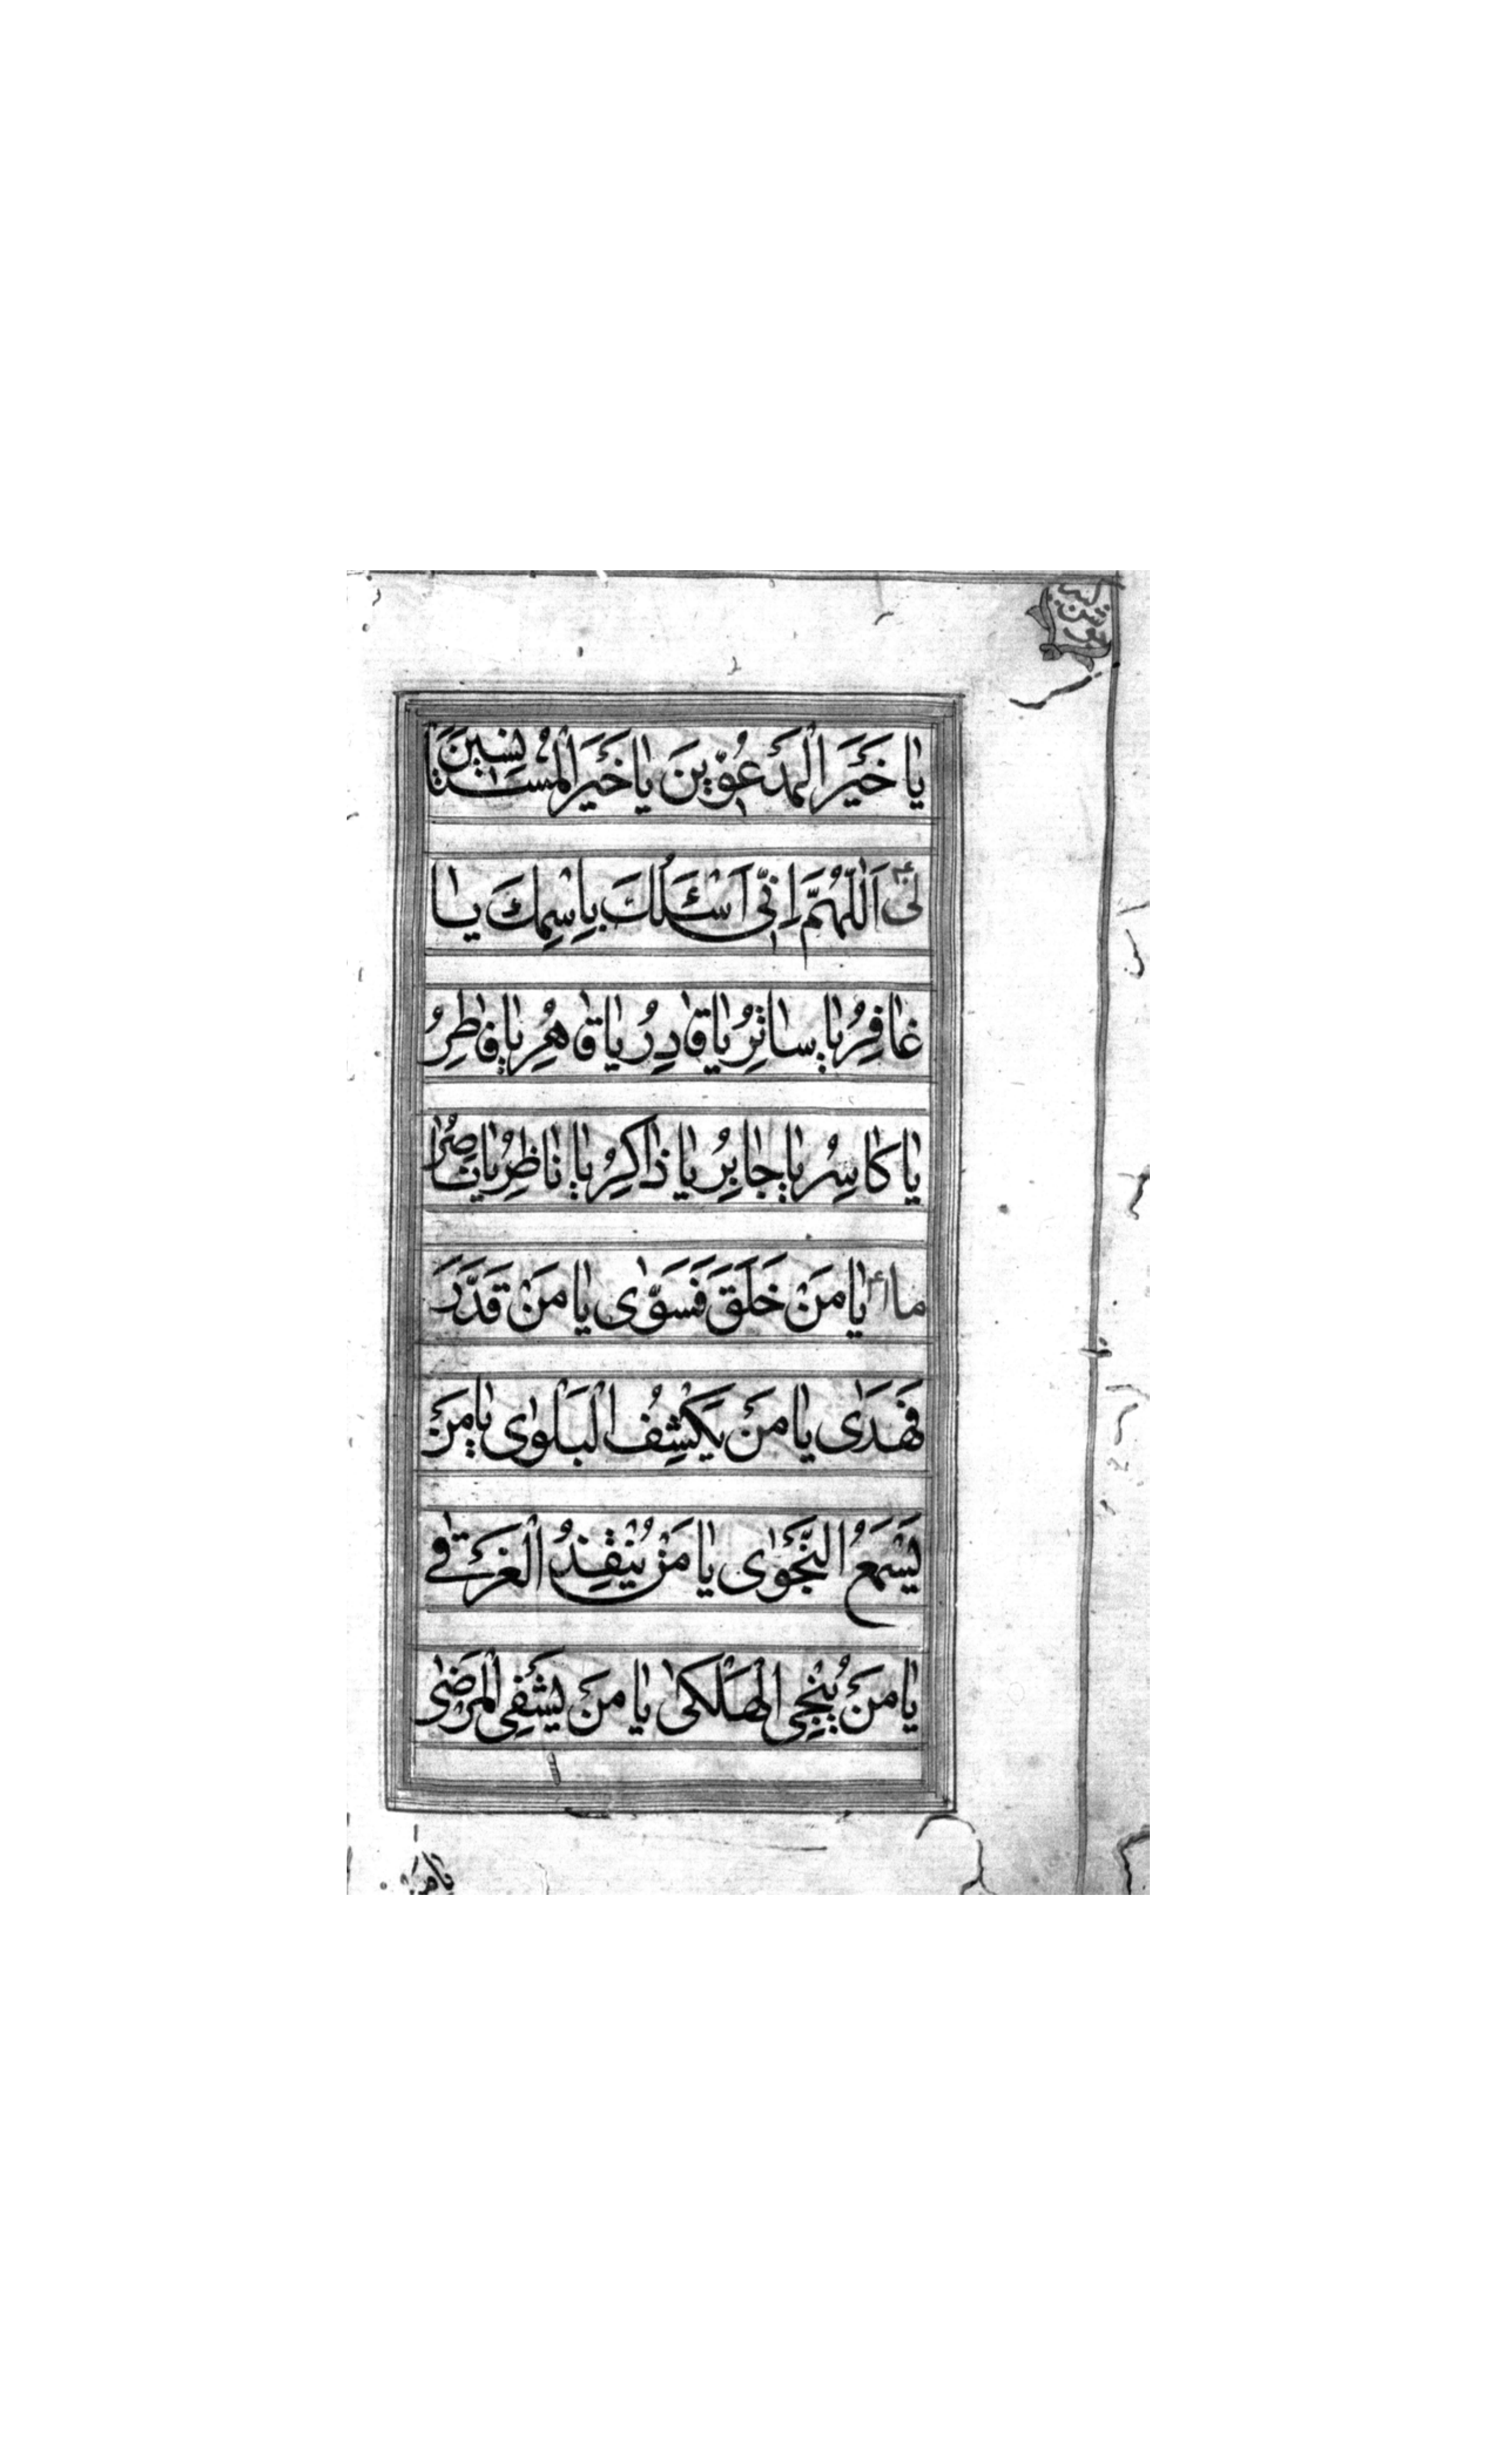 جوشن كبير
يٰا خَيْرَ الْمَدْعُوّينَ يٰا خَيْرَ الْمُسْتَأْنِسينَ
لى اَللّٰهُمَّ اِنّى اَسْئَلُكَ بِاِسْمِكَ يٰا
غٰافِرُ يٰا سٰاتِرُ يٰا قٰادِرُ يٰا قٰاهِرُ يٰا فٰاطِرُ
يٰا كٰاسِرُ يٰا جٰابِرُ يٰا ذٰاكِرُ يٰا نٰاظِرُ يٰا نٰاصِرُ
ما يٰا مَنْ خَلَقَ فَسَوّٰى يٰا مَنْ قَدَّرَ
فَهَدٰى يٰا مَنْ يَكْشِفُ الْبَلْوٰى يٰا مَنْ
يَسْمَعُ النَّجْوٰى يٰا مَنْ يُنْقِذُ الْغَرْقٰى
يٰا مَنْ يُنْجِى الْهَلْكٰى يٰا مَنْ يَشْفِى الْمَرْضٰى
يٰا مَنْ